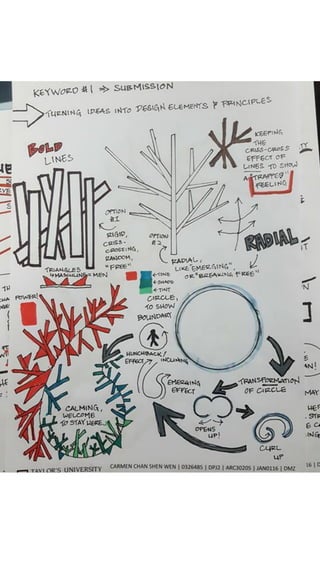 KEYWORD #1 ⇒ SUBMISSION
TURNING IDEAS INTO DESIGN ELEMENTS & PRINCIPLES
BOLD
LINES
KEEPING
THE
CRISS-CROSS
EFFECT OF
LINES TO SHOW
A "TRAPPED"
FEELING
OPTION
#1
RIGID,
CRISS-
CROSSING,
RANDOM,
"FREE"
OPTION
#2
RADIAL,
LIKE "EMERGING"
OR "BREAKING FREE"
RADIAL
TRIANGLES
MASCULINE MEN
POWER!
TINE
SHADE
TINT
CIRCLE,
TO SHOW
BOUNDARY
HUNCHBACK
EFFECT
INCLINING
EMERGING
EFFECT
TRANSFORMATION
OF CIRCLE
OPENS
UP!
CURL
UP
CALMING,
WELCOME
TO STAY HERE
TAYLOR'S UNIVERSITY
CARMEN CHAN SHEN WEN | 0326485 | DPJ2 | ARC30205 | JAN0116 | DMZ